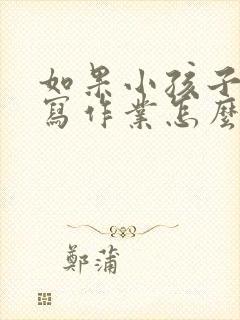 如果小孩子
寫作業怎麼
鄭蒲